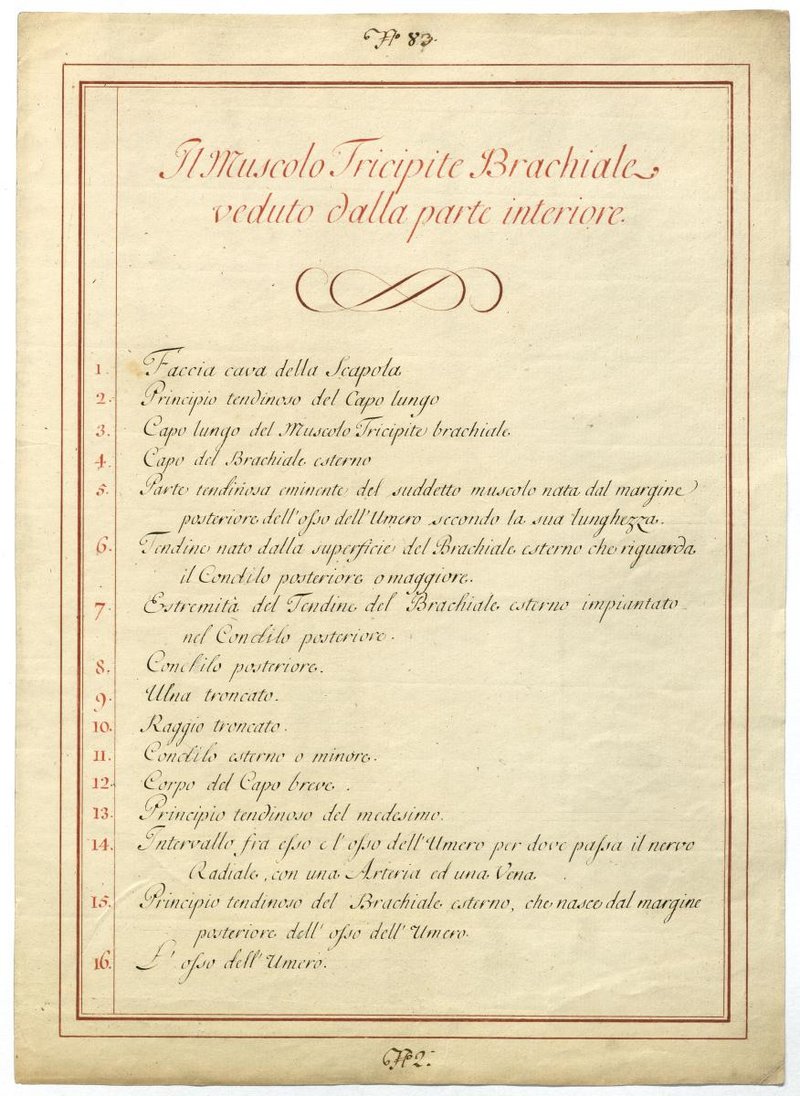 N.º 83.
Il Muscolo Tricipite Brachiale
veduto dalla parte interiore.
1. Faccia cava della Scapola
2. Principio tendinoso del Capo lungo
3. Capo lungo del Muscolo Tricipite brachiale
4. Capo del Brachiale esterno
5. Parte tendinosa eminente del suddetto muscolo nata dal margine
posteriore dell'osso dell'Umero secondo la sua lunghezza.
6. Tendine nato dalla superficie del Brachiale esterno che riguarda
il Condilo posteriore o maggiore.
7. Estremità del Tendine del Brachiale esterno impiantato
nel Condilo posteriore.
8. Condilo posteriore.
9. Ulna troncato.
10. Raggio troncato.
11. Condilo esterno o minore.
12. Corpo del Capo breve.
13. Principio tendinoso del medesimo.
14. Intervallo fra esso e l'osso dell'Umero per dove passa il nervo
Radiale, con una Arteria ed una Vena.
15. Principio tendinoso del Brachiale esterno, che nasce dal margine
posteriore dell'osso dell'Umero.
16. L'osso dell'Umero.
N.º 2.